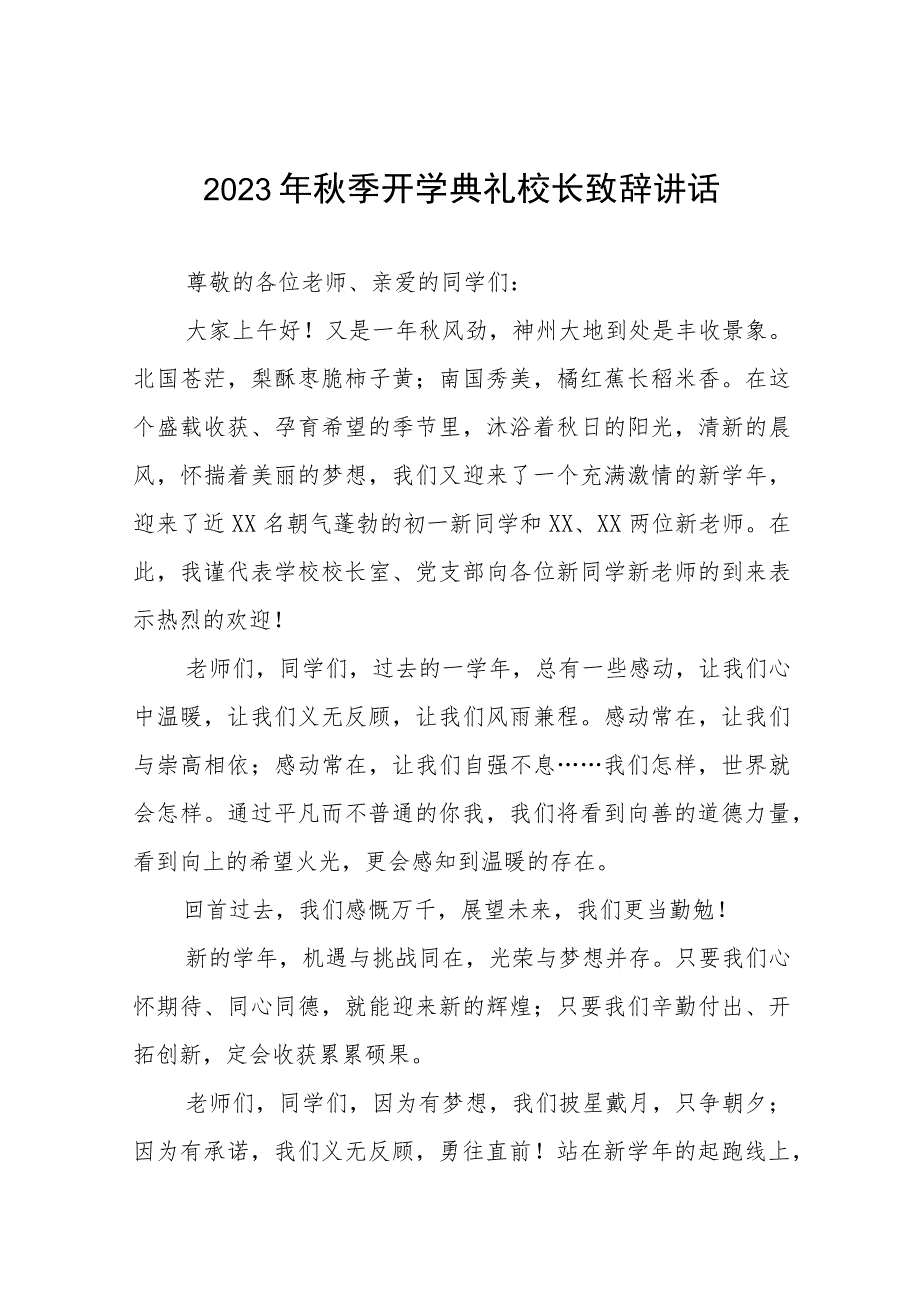 2023年秋季开学典礼校长致辞讲话
尊敬的各位老师、亲爱的同学们：
大家上午好！又是一年秋风劲，神州大地到处是丰收景象。
北国苍茫，梨酥枣脆柿子黄；南国秀美，橘红蕉长稻米香。在这
个盛载收获、孕育希望的季节里，沐浴着秋日的阳光，清新的晨
风，怀揣着美丽的梦想，我们又迎来了一个充满激情的新学年，
迎来了近XX名朝气蓬勃的初一新同学和XX、XX两位新老师。在
此，我谨代表学校校长室、党支部向各位新同学新老师的到来表
示热烈的欢迎！
老师们，同学们，过去的一学年，总有一些感动，让我们心
中温暖，让我们义无反顾，让我们风雨兼程。感动常在，让我们
与崇高相依；感动常在，让我们自强不息……我们怎样，世界就
会怎样。通过平凡而不普通的你我，我们将看到向善的道德力量，
看到向上的希望火光，更会感知到温暖的存在。
回首过去，我们感慨万千，展望未来，我们更当勤勉！
新的学年，机遇与挑战同在，光荣与梦想并存。只要我们心
怀期待、同心同德，就能迎来新的辉煌；只要我们辛勤付出、开
拓创新，定会收获累累硕果。
老师们，同学们，因为有梦想，我们披星戴月，只争朝夕；
因为有承诺，我们义无反顾，勇往直前！站在新学年的起跑线上，